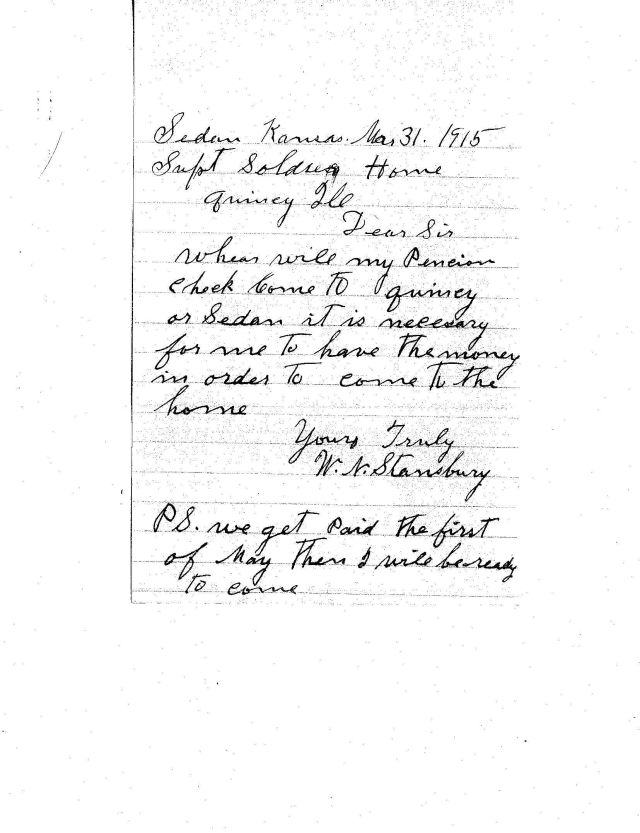 Sedan Kansas. Mar 31. 1915
Supt Soldiers Home
Quincy Ill
Dear Sir
whear will my Pencion
Check Come to Quincy
or Sedan it is necesary
for me to have the money
in order to come to the
home
Yours Truly
W. N. Stansbury
PS. we get Paid the first
of May then I will be ready
to come